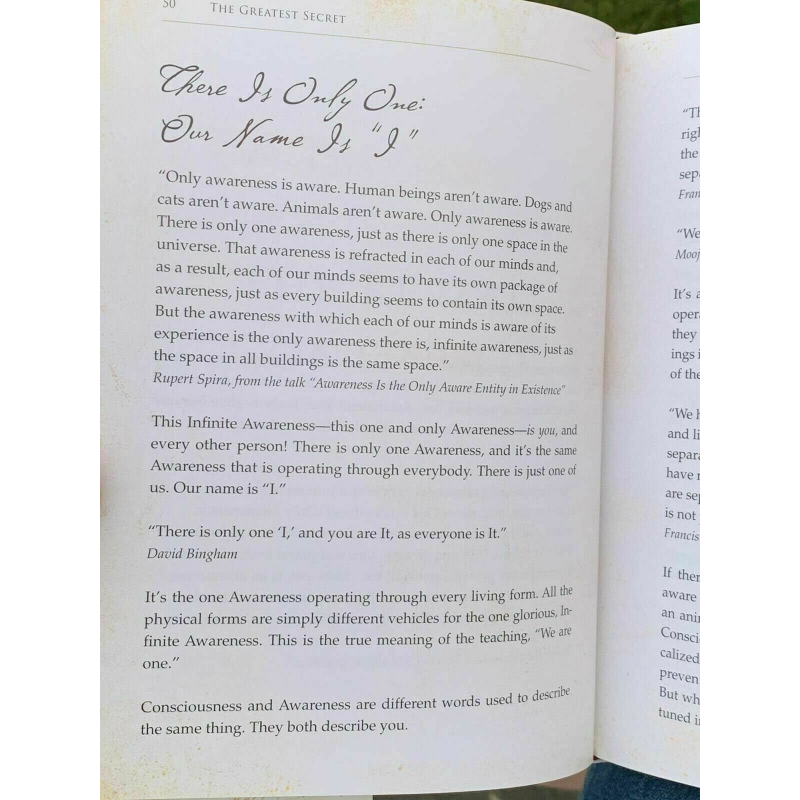 50 THE GREATEST SECRET
There Is Only One:
Our Name Is "I"
"Only awareness is aware. Human beings aren't aware. Dogs and
cats aren't aware. Animals aren't aware. Only awareness is aware.
There is only one awareness, just as there is only one space in the
universe. That awareness is refracted in each of our minds and,
as a result, each of our minds seems to have its own package of
awareness, just as every building seems to contain its own space.
But the awareness with which each of our minds is aware of its
experience is the only awareness there is, infinite awareness, just as
the space in all buildings is the same space."
Rupert Spira, from the talk "Awareness Is the Only Aware Entity in Existence"
This Infinite Awareness—this one and only Awareness—is you, and
every other person! There is only one Awareness, and it's the same
Awareness that is operating through everybody. There is just one of
us. Our name is "I."
"There is only one 'I,' and you are It, as everyone is It."
David Bingham
It's the one Awareness operating through every living form. All the
physical forms are simply different vehicles for the one glorious, In-
finite Awareness. This is the true meaning of the teaching, "We are
one."
Consciousness and Awareness are different words used to describe
the same thing. They both describe you.
the
"We
It's
they
of the
and
have
are
is not
Francis
If
aware
an
But
tuned